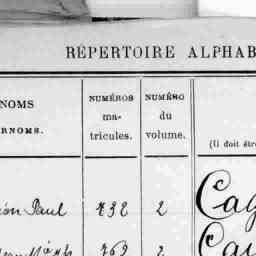 RÉPERTOIRE ALPHAB
NOMS
RNOMS.
NUMÉROS
ma-
tricules.
NUMÉRO
du
volume.
(Il doit êtr
Paul 832 2 Cag
769 2 Cai